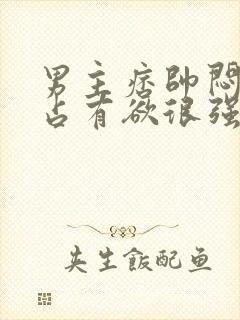 男主痞帅闷
占有欲很强
夹生飯配鱼